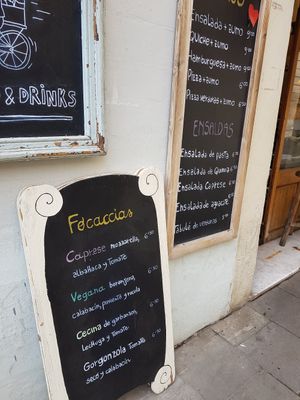 & DRINKS
Ensalada + zumo
Quiche + zumo
Hamburguesa + zumo
Pizza + zumo
Pizza verduras + zumo
ENSALDAS
Ensalada de pasta
Ensalada de Quinoa
Ensalada Caprese
Ensalada de aguacate
Tabulé de verduras
Focaccias
Caprese mozzarella,
albahaca y tomate
Vegana berenjena,
calabacín, pimiento y rucula
Cecina de garbanzos,
lechuga y tomate
Gorgonzola Tomate
seco y calabacín